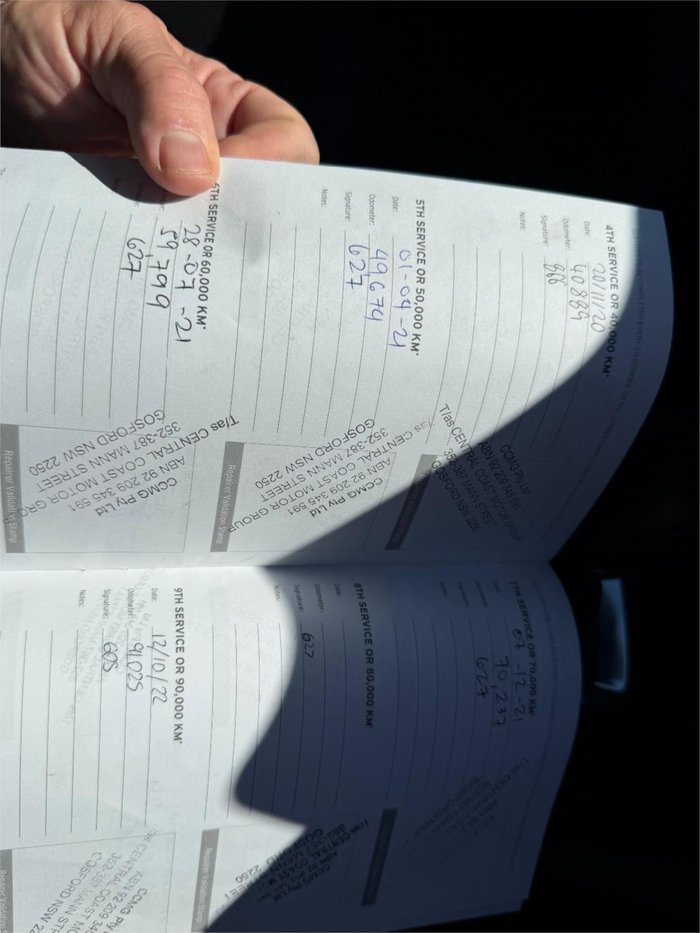 4TH SERVICE OR 40,000 KM*
Date: 20/11/20
Odometer: 40889
Signature: 866
Notes:
CCMG Pty Ltd
ABN 92 209 345 591
T/as CENTRAL COAST MOTOR GROUP
352-387 MANN STREET
GOSFORD NSW 2250
5TH SERVICE OR 50,000 KM*
Date: 01-04-21
Odometer: 49,674
Signature: 627
Notes:
CCMG Pty Ltd
ABN 92 209 345 591
T/as CENTRAL COAST MOTOR GROUP
352-387 MANN STREET
GOSFORD NSW 2250
Repairer Validation Stamp
6TH SERVICE OR 60,000 KM*
28-07-21
59,799
627
CCMG Pty Ltd
ABN 92 209 345 591
T/as CENTRAL COAST MOTOR GRO
352-387 MANN STREET
GOSFORD NSW 2250
Repairer Validation Stamp
7TH SERVICE OR 70,000 KM*
07-12-21
70,237
627
8TH SERVICE OR 80,000 KM*
Date:
Odometer:
Signature: 627
Notes:
CCMG Pty Ltd
GOSFORD NSW 2250
Repairer Validation Stamp
9TH SERVICE OR 90,000 KM*
Date: 12/10/22
Odometer: 91,025
Signature: 605
Notes:
CCMG Pty L
ABN 92 209 345
T/as CENTRAL COAST MO
352-387 MANN STR
GOSFORD NSW 2
Repairer Validation